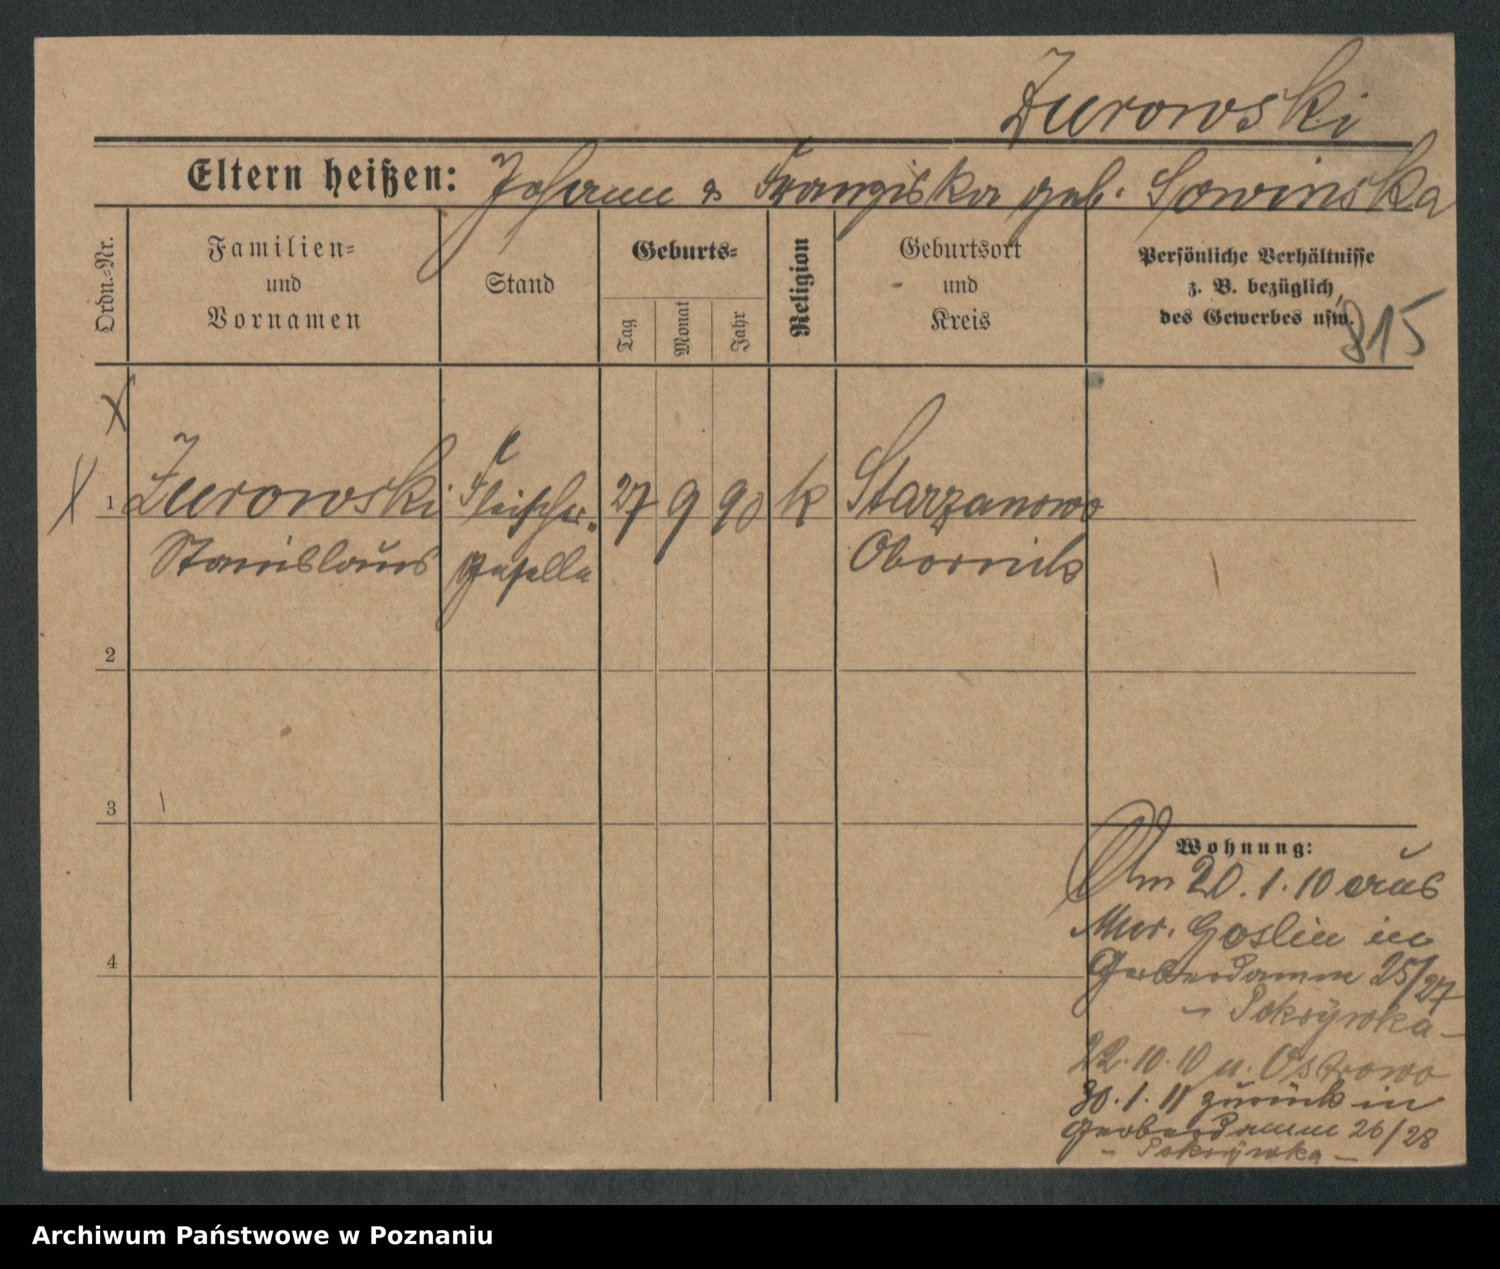 Zurowski
Eltern heißen: Johann & Franziska geb. Sowinska
Ordn.=Nr.
Familien=
und
Vornamen
Stand
Geburts=
Tag
Monat
Jahr
Religion
Geburtsort
und
Kreis
Persönliche Verhältnisse
z. B. bezüglich
des Gewerbes usw.
815
1 Zurowski Fleischer- 27 9 90 k Starzanowo
Stanislaus geselle Obornik
2
3
4
Wohnung:
Am 20.1.10 aus
Mur. Goslin in
Gerberdamm 25/27
- Pokrywka -
22.10.10 n. Ostrowo
30.1.11 zurück in
Gerberdamm 26/28
- Pokrywka -
Archiwum Państwowe w Poznaniu